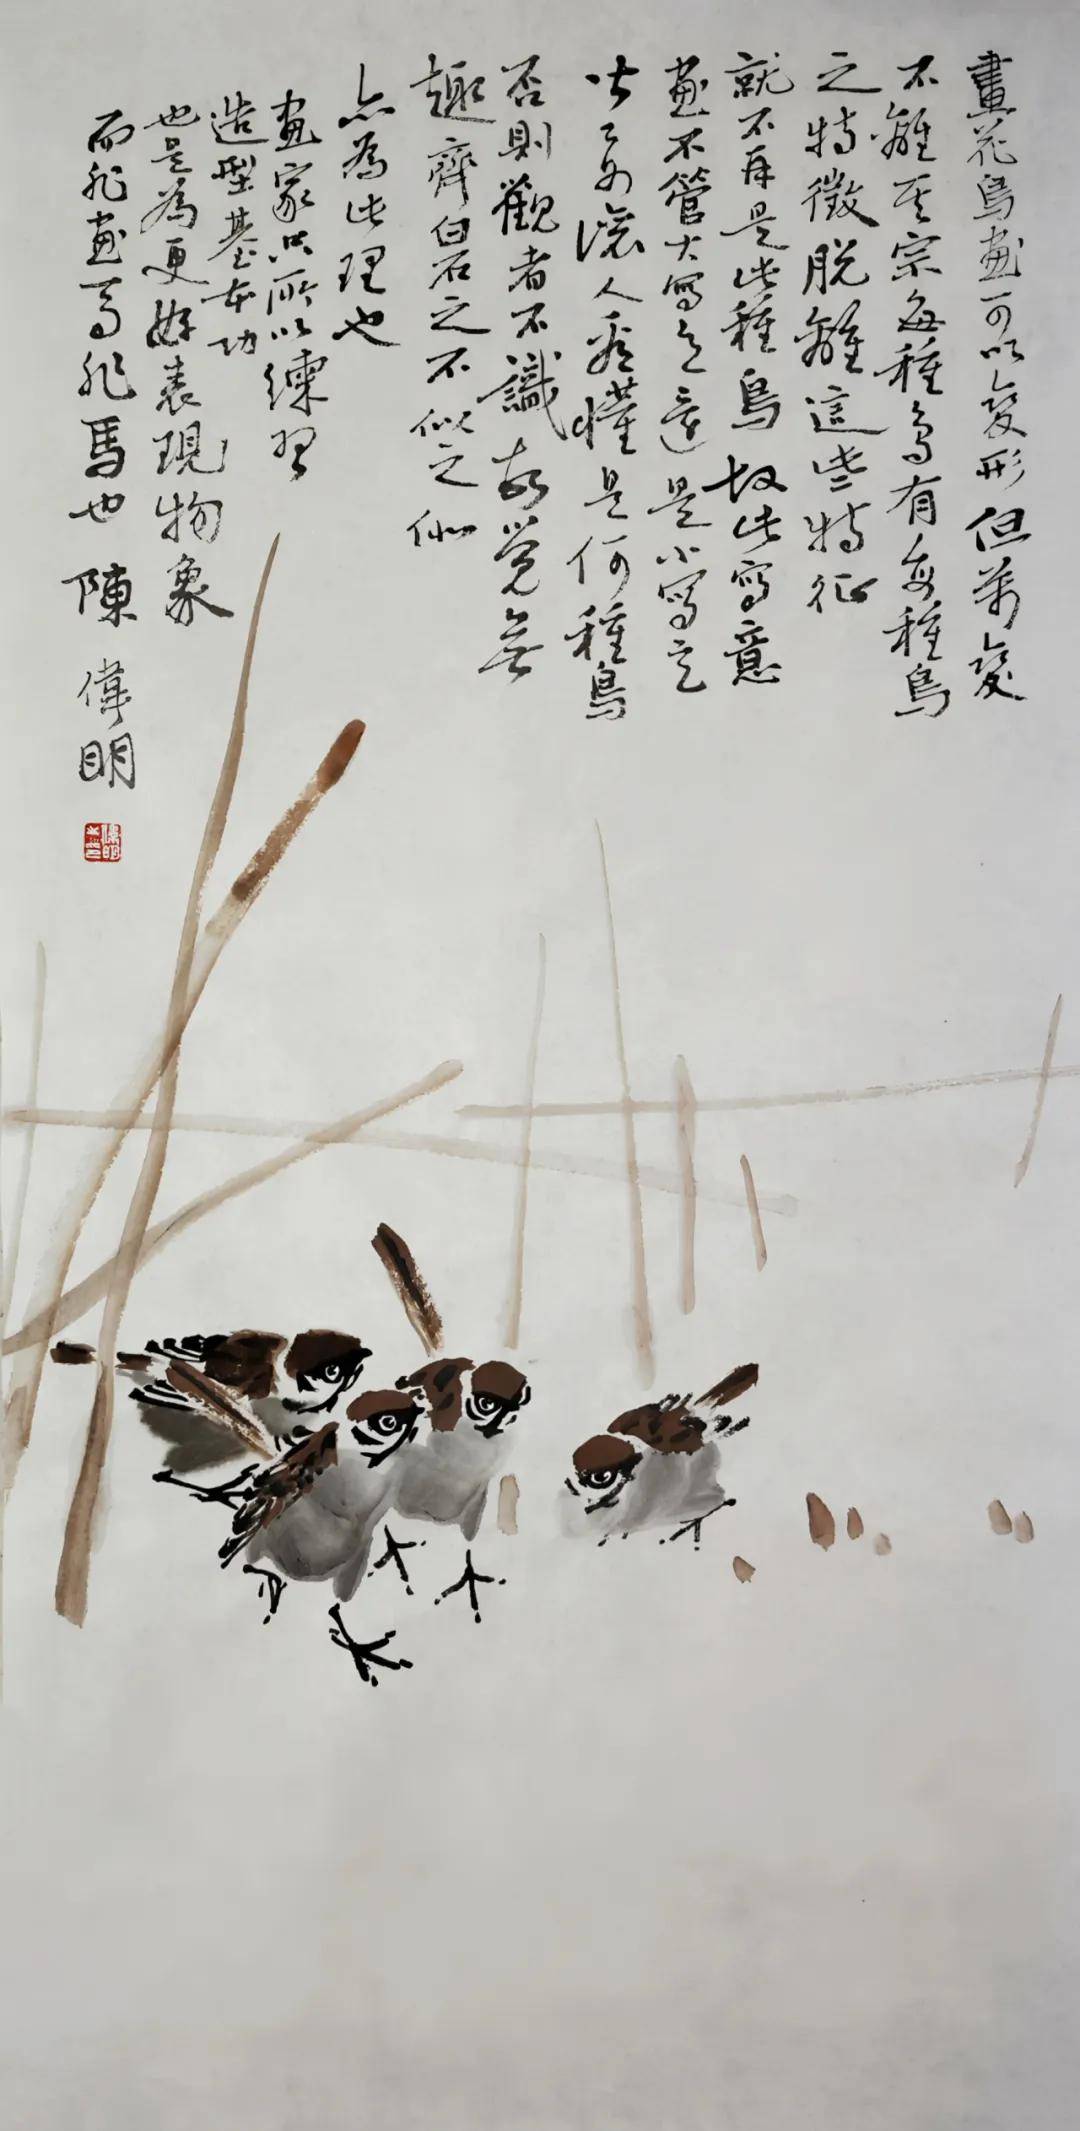 畫花鳥畫可以變形但萬變
不離其宗每種鳥有每種鳥
之特徵脱離這些特征
就不再是此種鳥故此寫意
畫不管大寫意還是小寫意
皆要讓人看懂是何種鳥
否則觀者不識故覺無
趣齊白石之不似之似
亦為此理也
畫家只所以練習
造型基本功
也是為更好表現物象
而非画馬非馬也陳偉明